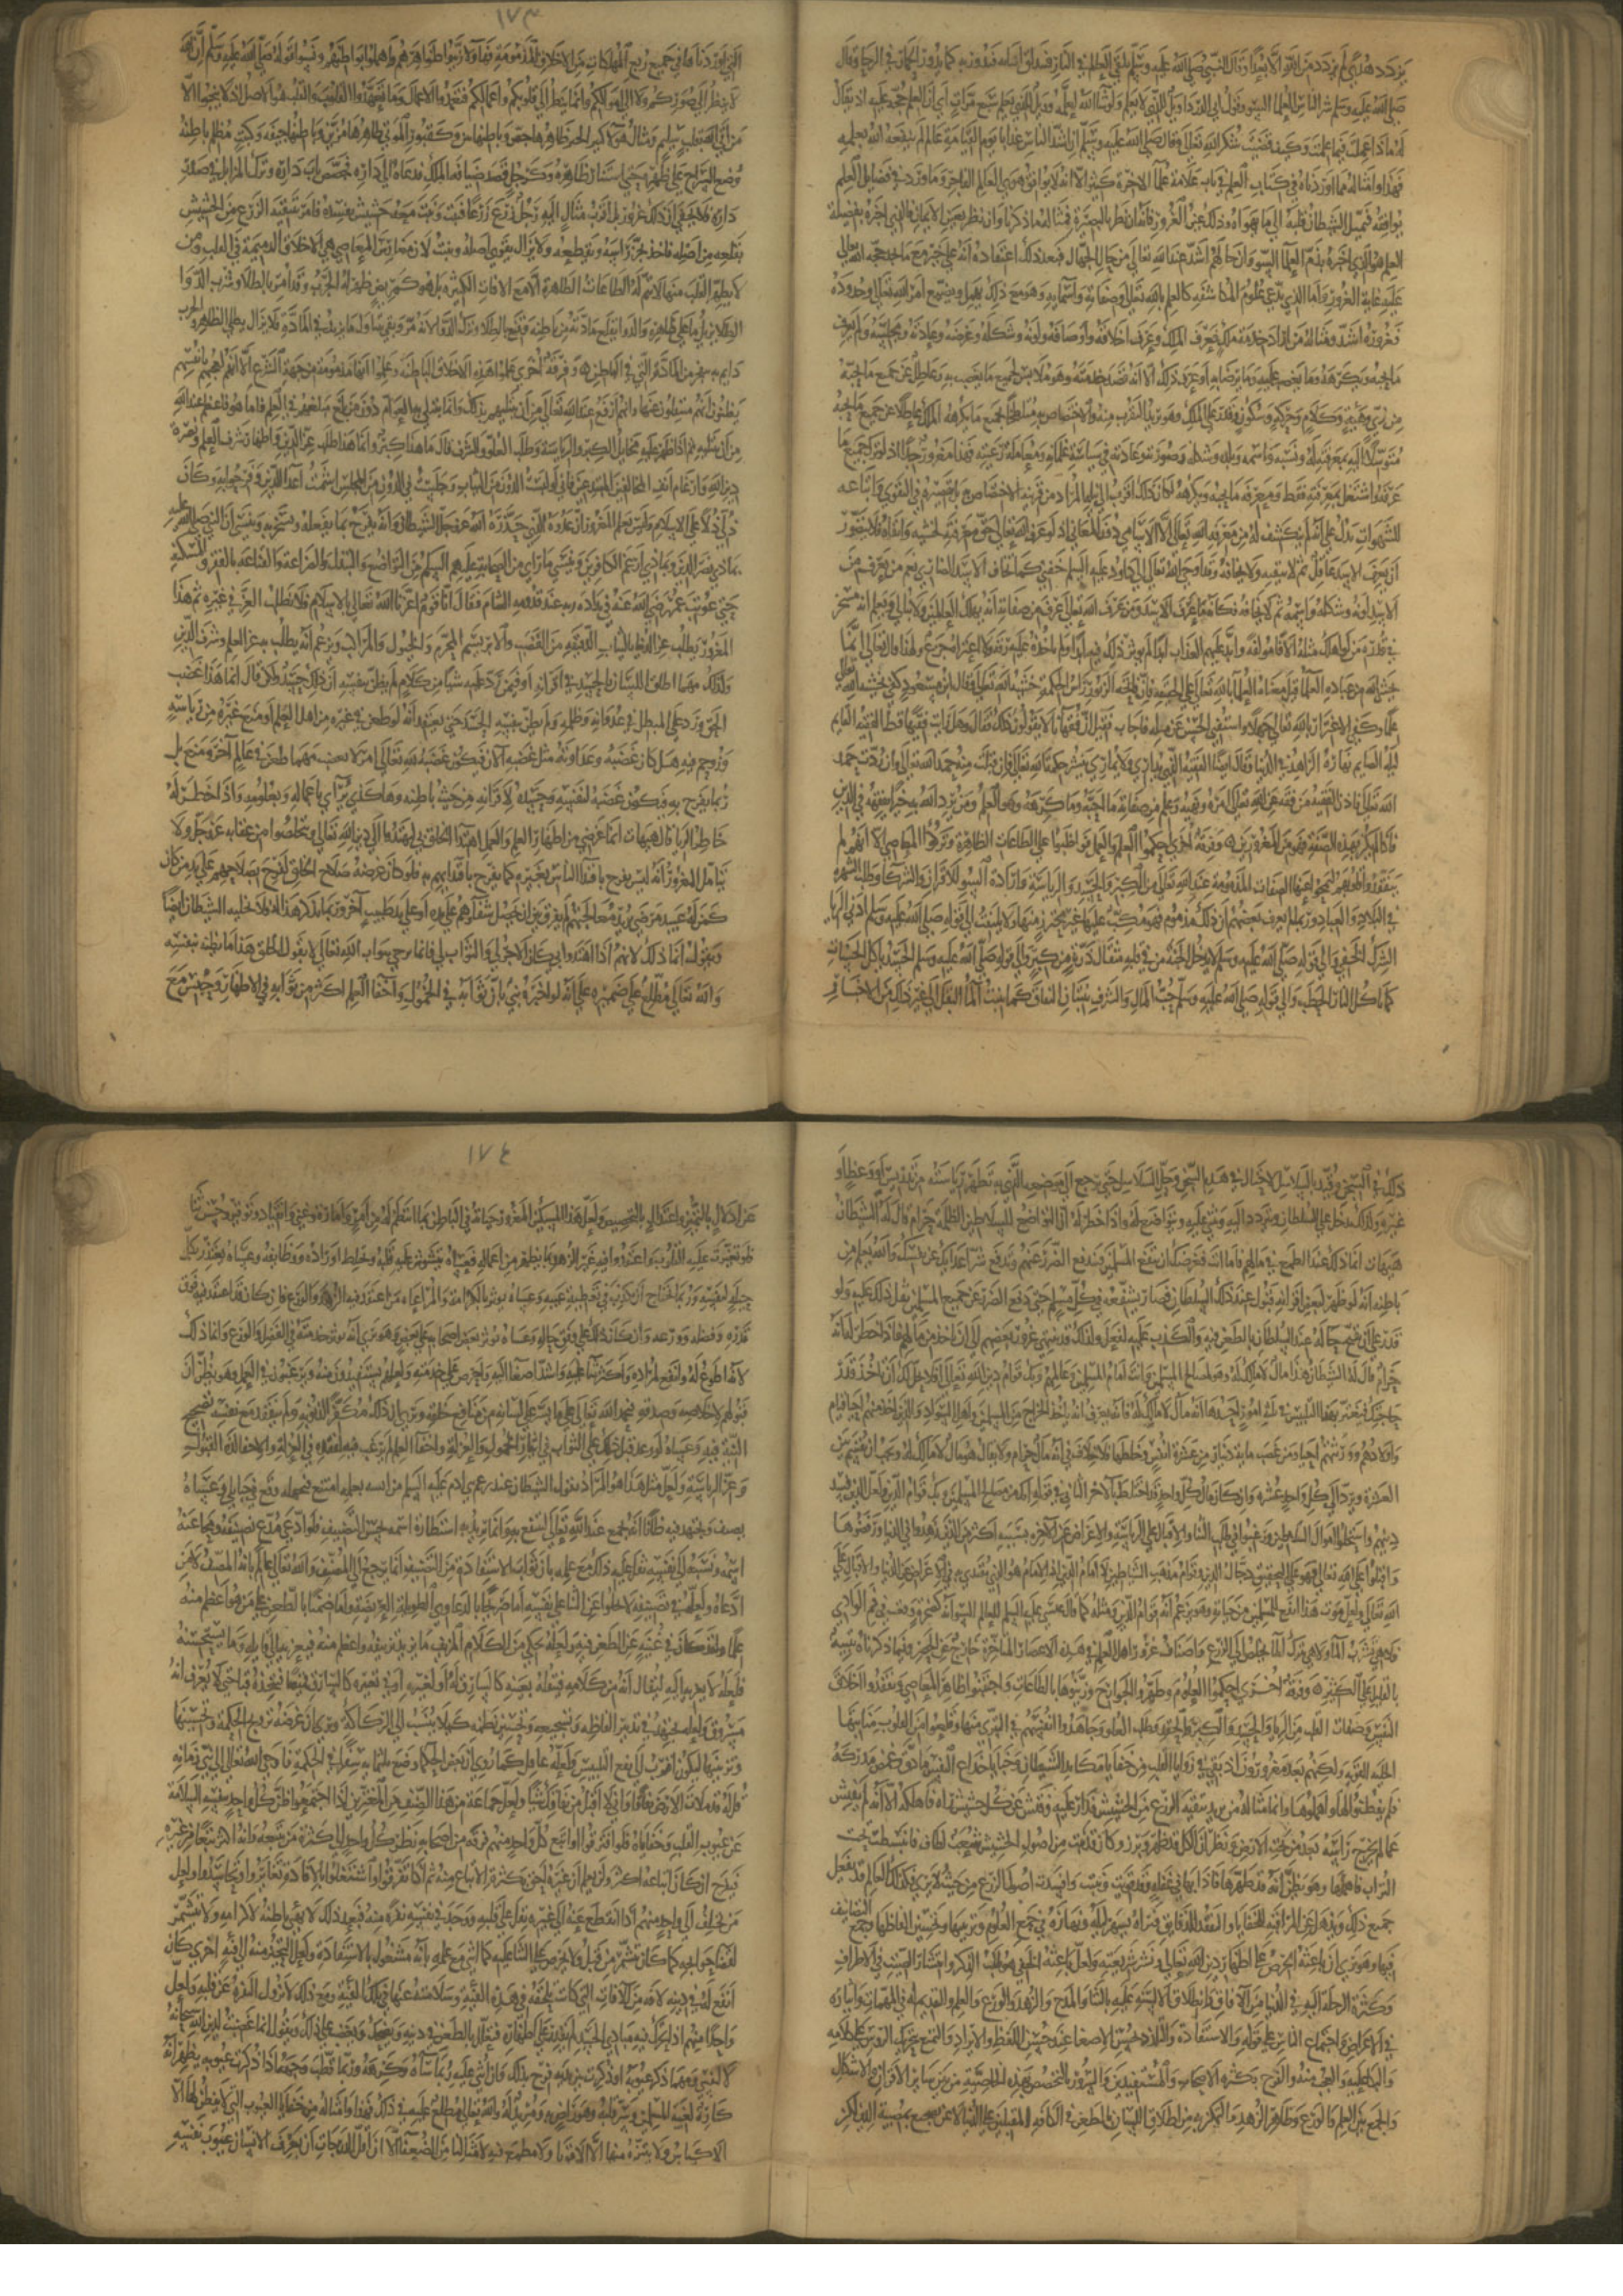 يزدد هدى لم يزدد من الله الا بعدا وقال النبي صلى الله عليه وسلم يلقى العالم في النار فتندلق اقتابه فيدور بها كما يدور الحمار في الرحا وقال
صلى الله عليه وسلم شر الناس العلما السوء وقول ابي الدردا ويل للذي لا يعلم ولو شا الله لعلمه وويل للذي يعلم سبع مرات اي ان العلم حجة عليه اذ يقال
له ماذا عملت فيما علمت وكيف قضيت شكر الله تعالى وقال صلى الله عليه وسلم ان اشد الناس عذابا يوم القيامة عالم لم ينفعه الله بعلمه
فهذا وامثاله مما اوردناه في كتاب العلم في باب علامة علما الاخرة كثير الا ان هذا لا يوافق هوى العالم الفاجر وما ورد في فضايل العلم
يوافقه فيميل الشيطان قلبه الى ما يهواه وذلك عين الغرور فانه ان نظر بالبصيرة فمثاله ما ذكرنا وان نظر بعين الايمان فالذي اخبره بفضيلة
العلم هو الذي اخبره بذم العلما السوء وان حالهم اشد عند الله تعالى من حال الجهال فبعد ذلك اعتقاده انه على خير مع تاكد حجة الله تعالى
عليه غاية الغرور واما الذي يدعي علوم المكاشفة كالعلم بالله تعالى وصفاته واسمايه وهو مع ذلك يهمل ويضيع امر الله تعالى وحدوده
فغروره اشد ومثاله مثال من اراد خدمة ملك فعرف الملك وعرف اخلاقه واوصافه ولونه وشكله وعرضه وعادته ومجلسه ولم يعرف
ما يحبه ويكرهه وما يغضب عليه وما يرضا به او عرف ذلك الا انه قصد خدمته وهو ملابس لجميع ما يغضب به وعاطل عن جميع ما يحبه
من زي وهيئة وكلام وحركة وسكون فقدم على الملك وهو يريد التقرب منه والاختصاص به متلطخا بجميع ما يكرهه الملك عاطلا عن جميع ما يحبه
متوسلا اليه بمعرفته له ولنسبه واسمه وبلده وشكله وصورته وعادته في سياسة غلمانه ومعاملة رعيته فهذا مغرور جدا اذ لو ترك جميع ما
عرفه واشتغل بمعرفته فقط ومعرفة ما يحبه ويكرهه لكان ذلك اقرب الى نيله المراد من قربه والاختصاص به بل تقصيره في التقوى واتباعه
للشهوات يدل على انه لم ينكشف له من معرفة الله تعالى الا الاسامي دون المعاني اذ لو عرف الله تعالى حق معرفته لخشيه واتقاه فلا يتصور
ان يعرف الاسد عاقل ثم لا يتقيه ولا يخافه وقد اوحى الله تعالى الى داود عليه السلام خفني كما تخاف الاسد الضاري نعم من يعرف من
الاسد لونه وشكله واسمه ثم لا يخافه فكانه ما عرف الاسد ومن عرف الله تعالى عرف من صفاته انه يهلك العالمين ولا يبالي ويعلم انه مسخر
في قدرة من لو اهلك مثله الافا مولفة وابد عليهم العذاب ابد الاباد لم يوثر ذلك فيه اثرا ولم تاخذه عليه رقة ولا اعتراه جزع ولهذا قال تعالى انما
يخشى الله من عباده العلما
علما وكفى بالاغترار بالله تعالى جهلا واستفتى الحسن عن مسئلة فاجاب فقيل له ان فقهانا لا يقولون ذلك فقال وهل رايت فقيها قط الفقيه القايم
ليله الصايم نهاره الزاهد في الدنيا وقال ايضا الفقيه الذي لا يداري ولا يماري ينشر حكمة الله تعالى فان قبلت منه حمد الله تعالى وان ردت حمد
الله تعالى فاذن الفقيه من فقه عن الله تعالى امره ونهيه وعلم من صفاته ما احبه وما كرهه وهو العالم ومن يرد الله به خيرا يفقهه في الدين
فاذا لم يكن بهذه الصفة فهو من المغرورين وفرقة اخرى احكموا العلم والعمل فواظبوا على الطاعات الظاهرة وتركوا المعاصي الا انهم لم
يتفقدوا قلوبهم ليمحوا عنها الصفات المذمومة عند الله تعالى من الكبر والحسد والريا والرياسة وارادة السوء للاقران والشركا وطلب الشهرة
في البلاد والعباد وربما لم يعرف بعضهم ان ذلك مذموم فهو مكب عليها غير محترز منها ولا يلتفت الى قوله صلى الله عليه وسلم ادنى الريا
الشرك الخفي والى قوله صلى الله عليه وسلم لا يدخل الجنة من في قلبه مثقال ذرة من كبر والى قوله صلى الله عليه وسلم الحسد ياكل الحسنات
كما تاكل النار الحطب والى قوله صلى الله عليه وسلم حب المال والشرف ينبتان النفاق كما ينبت الما البقل الى غير ذلك من الاخبار
١٧٣
التي اوردناها في جميع ربع المهلكات من الاخلاق المذمومة فهاولا زينوا ظواهرهم واهملوا بواطنهم ونسوا قوله صلى الله عليه وسلم ان الله
لا ينظر الى صوركم ولا الى اموالكم وانما ينظر الى قلوبكم واعمالكم فتعهدوا الاعمال وما تعهدوا القلوب والقلب هو الاصل اذ لا ينجو الا
من اتى الله بقلب سليم ومثال هولا كبير الحش ظاهرها جص وباطنها نتن وكقبور الموتى ظاهرها مزين وباطنها جيفة وكبيت مظلم باطنه
وضع السراج على ظهره حتى استنار ظاهره وكرجل قصد ضيافة الملك فدعاه الى داره فجصص باب داره وترك المزابل في صدر
داره فلا يخفى ان ذلك غرور بل اقرب مثال اليه رجل زرع زرعا فنبت ونبت معه حشيش يفسده فامر بتنقية الزرع عن الحشيش
بقلعه من اصله فاخذ يجز راسه ويقطعه ولا يزال يقوى اصله وينبت لان مغارس المعاصي هي الاخلاق الذميمة في القلب ومن
لا يطهر القلب منها لا تتم له الطاعات الظاهرة الا مع الافات الكثيرة بل هو كمريض ظهر به الجرب وقد امر بالطلا وشرب الدوا
دايم به يتفجر من المادة التي في الباطن وفرقة اخرى علموا هذه الاخلاق الباطنة وعلموا انها مذمومة من جهة الشرع الا انهم لعجبهم بانفسهم
يظنون انهم منفكون عنها وانهم ارفع عند الله تعالى من ان يبتليهم بذلك وانما يبتلي به العوام دون من بلغ مبلغهم في العلم فاما هو فاعظم عند الله
من ان يبتليه ثم اذا ظهر عليه مخايل الكبر والرياسة وطلب العلو والشرف قال ما هذا كبر وانما هذا طلب عز الدين واظهار شرف العلم ونصرة
دين الله وارغام انف المخالفين المبتدعين فاني لو لبست الدون من الثياب وجلست في الدون من المجلس شمت اعدا الدين وفرحوا بذلك وكان
ذلي ذلا على الاسلام ونسي المغرور ان عدوه الذي حذره الله عز وجل الشيطان وانه يفرح بما يفعله ويسخر به وينسى ان النبي صلى
بماذا نصر الدين وبماذا ارغم الكافرين وينسى ما روي من الصحابة عليهم السلام من التواضع والتبذل والقناعة بالفقر والمسكنة
حتى عوتب عمر رضي الله عنه في بذاذة زيه عند قدومه الشام فقال انا قوم اعزنا الله تعالى بالاسلام فلا نطلب العز في غيره ثم هذا
المغرور يطلب عز الدين بالثياب الرقيقة من القصب والابريسم المحرم والخيول والمراكب ويزعم انه يطلب به عز العلم وشرف الدين
وكذلك مهما اطلق اللسان بالحسد في اقرانه او فيمن رد عليه شيا من كلامه لم يظن بنفسه ان ذلك حسد ولكن قال انما هذا غضب
للحق ورد على المبطل في عدوانه وظلمه ولم يظن بنفسه الحسد حتى يعتقد انه لو طعن في غيره من اهل العلم او منع غيره من رياسة
وزوحم فيها هل كان غضبه وعداوته مثل غضبه الان فيكون غضبه لله تعالى ام لا يغضب مهما طعن في عالم اخر ومنع بل
ربما يفرح به فيكون غضبه لنفسه وحسده لاقرانه من خبث باطنه وهكذا يرآي باعماله وبعلومه واذا خطر له
خاطر الريا قال هيهات انما غرضي من اظهار العلم والعمل اقتدا الخلق بي ليهتدوا الى دين الله تعالى ويتخلصوا من عقابه عز وجل ولا
يتامل المغرور انه ليس يفرح باقتدا الناس بغيره كما يفرح باقتدايهم به فلو كان غرضه صلاح الخلق لفرح بصلاحهم على يد من كان
كمن له عبيد مرضى يريد معالجتهم لم يفرق بين ان يحصل شفاوهم على يده او على يد طبيب اخر وربما يذكر هذا له فلا يخليه الشيطان ايضا
ويقول انما ذلك لانهم اذا اهتدوا بي كان الاجر لي والثواب لي فانما فرحي بثواب الله تعالى لا بقول الخلق هذا ما يظنه بنفسه
والله تعالى مطلع على ضميره على انه لو اخبره نبي بان ثوابه في الخمول واخفا العلم اكثر من ثوابه في الاظهار وحبس مع
ذلك في السجن وقيد بالسلاسل لاحتال في هدم السجن وحل السلاسل حتى يرجع الى موضعه الذي به تظهر رياسته من تدريس او وعظ او
غيره وكذلك يدخل على السلطان ويتودد اليه ويثني عليه ويتواضع له واذا خطر له ان التواضع للسلاطين الظلمة حرام قال له الشيطان
هيهات انما ذلك عند الطمع في مالهم فاما انت فغرضك ان تنفع المسلمين فتدفع الضرر عنهم وتدفع شر اعدايك عن نفسك والله يعلم من
باطنه انه لو ظهر لبعض اقرانه قبول عند ذلك السلطان فصار يشفعه في كل مسلم حتى دفع الضرر عن جميع المسلمين ثقل ذلك عليه ولو
قدر على ان يقبح حاله عند السلطان بالطعن فيه والكذب عليه لفعل وكذلك قد ينتهي غرور بعضهم الى ان ياخذ من مالهم فاذا خطر له انه
حرام قال له الشيطان هذا مال لا مالك له وهو لمصالح المسلمين وانت امام المسلمين وعالمهم وبك قوام دين الله تعالى افلا يحل لك ان تاخذ قدر
حاجتك فيغتر بهذا التلبيس في ثلاثة امور احدها انه مال لا مالك له فانه يعرف انه ياخذ الخراج من المسلمين واهل السواد والذين اخذ منهم احيا قيام
واولادهم وورثتهم احيا
العشرة ورد الى كل واحد عشره وان كان مال كل واحد قد اختلط بالاخر الثاني في قوله انك من مصالح المسلمين وبك قوام الدين ولعل الذين فسد
دينهم واستحلوا اموال السلاطين ورغبوا في طلب الدنيا والاقبال على الرياسة والاعراض عن الاخرة بسببه اكثر من الذين زهدوا في الدنيا ورفضوها
واقبلوا على الله تعالى فهو على التحقيق دجال الدين وقوام مذهب الشياطين لا امام الدين اذ الامام هو الذي يقتدى به في الاعراض عن الدنيا والاقبال على
الله تعالى ولعل موت هذا انفع للمسلمين من حياته وهو يزعم انه قوام الدين ومثله كما قال عيسى عليه السلام للعالم السوء انه كصخرة وقعت في فم الوادي
فلا هي تشرب الما ولا هي تترك الما يخلص الى الزرع واصناف غرور اهل العلم في هذه الاعصار المتاخرة خارج عن الحصر وفيما ذكرناه تنبيه
بالقليل على الكثير وفرقة اخرى احكموا العلوم وطهروا الجوارح وزينوها بالطاعات واجتنبوا ظاهر المعاصي وتفقدوا اخلاق
النفس وصفات القلب من الريا والحسد والكبر والحقد وطلب العلو وجاهدوا انفسهم في التبري منها وقلعوا من القلوب منابتها
الجلية القوية ولكنهم بعد مغرورون اذ بقيت في زوايا القلب من خفايا مكايد الشيطان وخبايا خداع النفس ما دق وغمض مدركه
فلم يفطنوا لها واهملوها وانما مثاله من يريد تنقية الزرع من الحشيش فدار عليه وفتش عن كل حشيش رآه فاقلعه الا انه لم يفتش
عما لم يخرج راسه بعد من تحت الارض وظن ان الكل قد ظهر وبرز وكان قد نبت من اصول الحشيش شعب لطاف فانبسطت تحت
التراب فاهملها وهو يظن انه قد طهرها فاذا بها في غفلته قد نبتت وقويت وافسدت اصول الزرع من حيث لا يدري فكذلك العالم قد يفعل
جميع ذلك ويذهل عن المراقبة للخفايا والتفقد للدقايق فتراه يسهر ليله ونهاره في جمع العلوم وترتيبها وتحسين الفاظها وجمع التصانيف
فيها وهو يرى ان باعثه الحرص على اظهار دين الله تعالى ونشر شريعته ولعل باعثه الخفي هو طلب الذكر وانتشار الصيت في الاطراف
وكثرة الرحلة اليه من الافاق وانطلاق الالسنة عليه بالثنا والمدح بالزهد والورع والعلم والتقديم له في المهمات وايثاره
في الاغراض واجتماع الناس على قوله والاستفادة والتلذذ بحسن الاصغا عند حسن اللفظ والايراد والتمتع بتحريك الروس على كلامه
والبكا عليه والتعجب منه والفرح بكثرة الاصحاب والمستفيدين والسرور بالتخصيص بهذه الخاصية من بين ساير الاقران والاشكال
والجمع بين العلم والورع وظاهر الزهد والتمكن به من اطلاق اللسان بالطعن في الكافة المقبلين على الدنيا لا عن تفجع بمصيبة الدين ولكن
١٧٤
عن ادلال بالتميز واعتداد بالتخصيص ولعل هذا المسكين المغرور حياته في الباطن بما انتظم له من امر وامارة وعز وانقياد وتوقير وحسن ثنا
فلو تغيرت عليه القلوب واعتقدوا فيه غير الزهد بما يظهر من اعماله فعساه يتشوش عليه قلبه ويختلط اوراده ووظايفه وعساه يعتذر بكل
حيلة لنفسه وربما يحتاج ان يكذب في تغطية عيبه وعساه يوثر بالكرامة والمراعاة من اعتقد فيه الزهد والورع وان كان قد اعتقد فيه فوق
قدره
لانه اطوع له واتبع لمراده واكثر ثنا عليه واشد اصغا اليه واحرص على خدمته ولعلهم يستفيدون منه ويرغبون في العلم وهو يظن ان
قبولهم لاخلاصه وصدقه فيحمد الله تعالى على ما يسر على لسانه من منافع خلقه ويرى ان ذلك مكفر لذنوبه ولم يتفقد مع نفسه تصحيح
النية فيه وعساه لو وعد بمثل ذلك الثواب في ايثار الخمول والعزلة واخفا العلم لم يرغب فيه لفقده في العزلة والاختفا لذة القبول
وعز الرياسة ولعل مثل هذا هو المراد بقول الشيطان من زعم من بني ادم
يصنف ويجتهد فيه ظانا انه يجمع علم الله تعالى لينتفع به وانما يريد به استطارة اسمه بحسن التصنيف فلو ادعى مدع تصنيفه ومحا عنه
اسمه ونسبه الى نفسه ثقل عليه ذلك مع علمه بان ثواب الاستفادة من التصنيف انما يرجع الى المصنف والله تعالى عالم بانه المصنف لا من
ادعاه ولعله في تصنيفه لا يخلوا عن الثنا على نفسه اما صريحا بالدعاوى الطويلة العريضة واما ضمنا بالطعن في غيره
علما ولقد كان في غنية عن الطعن فيه ولعله يحكي من الكلام المزيف ما يزيد تزييفه فيعزيه الى قايله وما يستحسنه
فلعله لا يعزيه اليه ليظن انه من كلامه فينقله بعينه كالسارق له او يغيره ادنى تغيير كالذي يسرق قميصا فيتخذه قبا حتى لا يعرف انه
مسروق ولعله يجتهد في تزيين الفاظه وتسجيعه وتحسين نظمه كيلا ينسب الى الركاكة ويرى ان غرضه ترويج الحكمة وتحسينها
وتزيينها ليكون اقرب الى نفع الناس ولعله غافل عما روي ان بعض الحكما وضع ثلثماية مصنف في الحكمة فاوحى الله تعالى الى نبي زمانه
قل له قد ملات الارض نفاقا واني لا اقبل من نفاقك شيا ولعل جماعة من هذا الصنف من المغترين اذا اجتمعوا ظن كل واحد بنفسه السلامة
عن عيوب القلب وخفاياه فلو افترقوا واتبع كل واحد منهم فرقة من اصحابه نظر كل واحد الى كثرة من يتبعه وانه اكثر تبعا من غيره
فيفرح ان كان اتباعه اكثر وان علم ان غيره احق بكثرة الاتباع منه ثم اذا تفرقوا واشتغلوا بالافادة تغايروا وتحاسدوا ولعل
من يختلف الى واحد منهم اذا انقطع عنه الى غيره ثقل على قلبه ووجد في نفسه نفرة منه فبعد ذلك لا يهتز باطنه لاكرامه ولا يتشمر
لقضا حوايجه كما كان يتشمر من قبل ولا يحرص على الثنا عليه كما اثنى مع علمه بانه مشغول بالاستفادة ولعل التحيز منه الى فئة اخرى كان
انفع له في دينه لافة من الافات التي كانت تلحقه في هذه الفئة وسلامته عنها في تلك الفئة ومع ذلك لا تزول النفرة عن قلبه ولعل
واحدا منهم اذا تحرك فيه مبادي الحسد لم يقدر على اظهاره فيتعلل بالطعن في دينه وورعه ليحمل غضبه على ذلك ويقول انما غضبت لدين الله سبحانه
لا لنفسي ومهما ذكر عيوبه بين يديه فرح بذلك وان اثني عليه ربما ساءه وكرهه وربما قطب وجهه اذا ذكرت عيوبه يظهر انه
كاره لغيبة المسلمين وسر قلبه وهو راض به ومريد له والله تعالى مطلع عليه في ذلك فهذا وامثاله من خفايا العيوب التي لا يفطن لها الا
الاكياس ولا يتنزه منها الا الاقويا ولا مطمع فيه لامثالنا من الضعفا الا ان اقل الدرجات ان يعرف الانسان عيوب نفسه